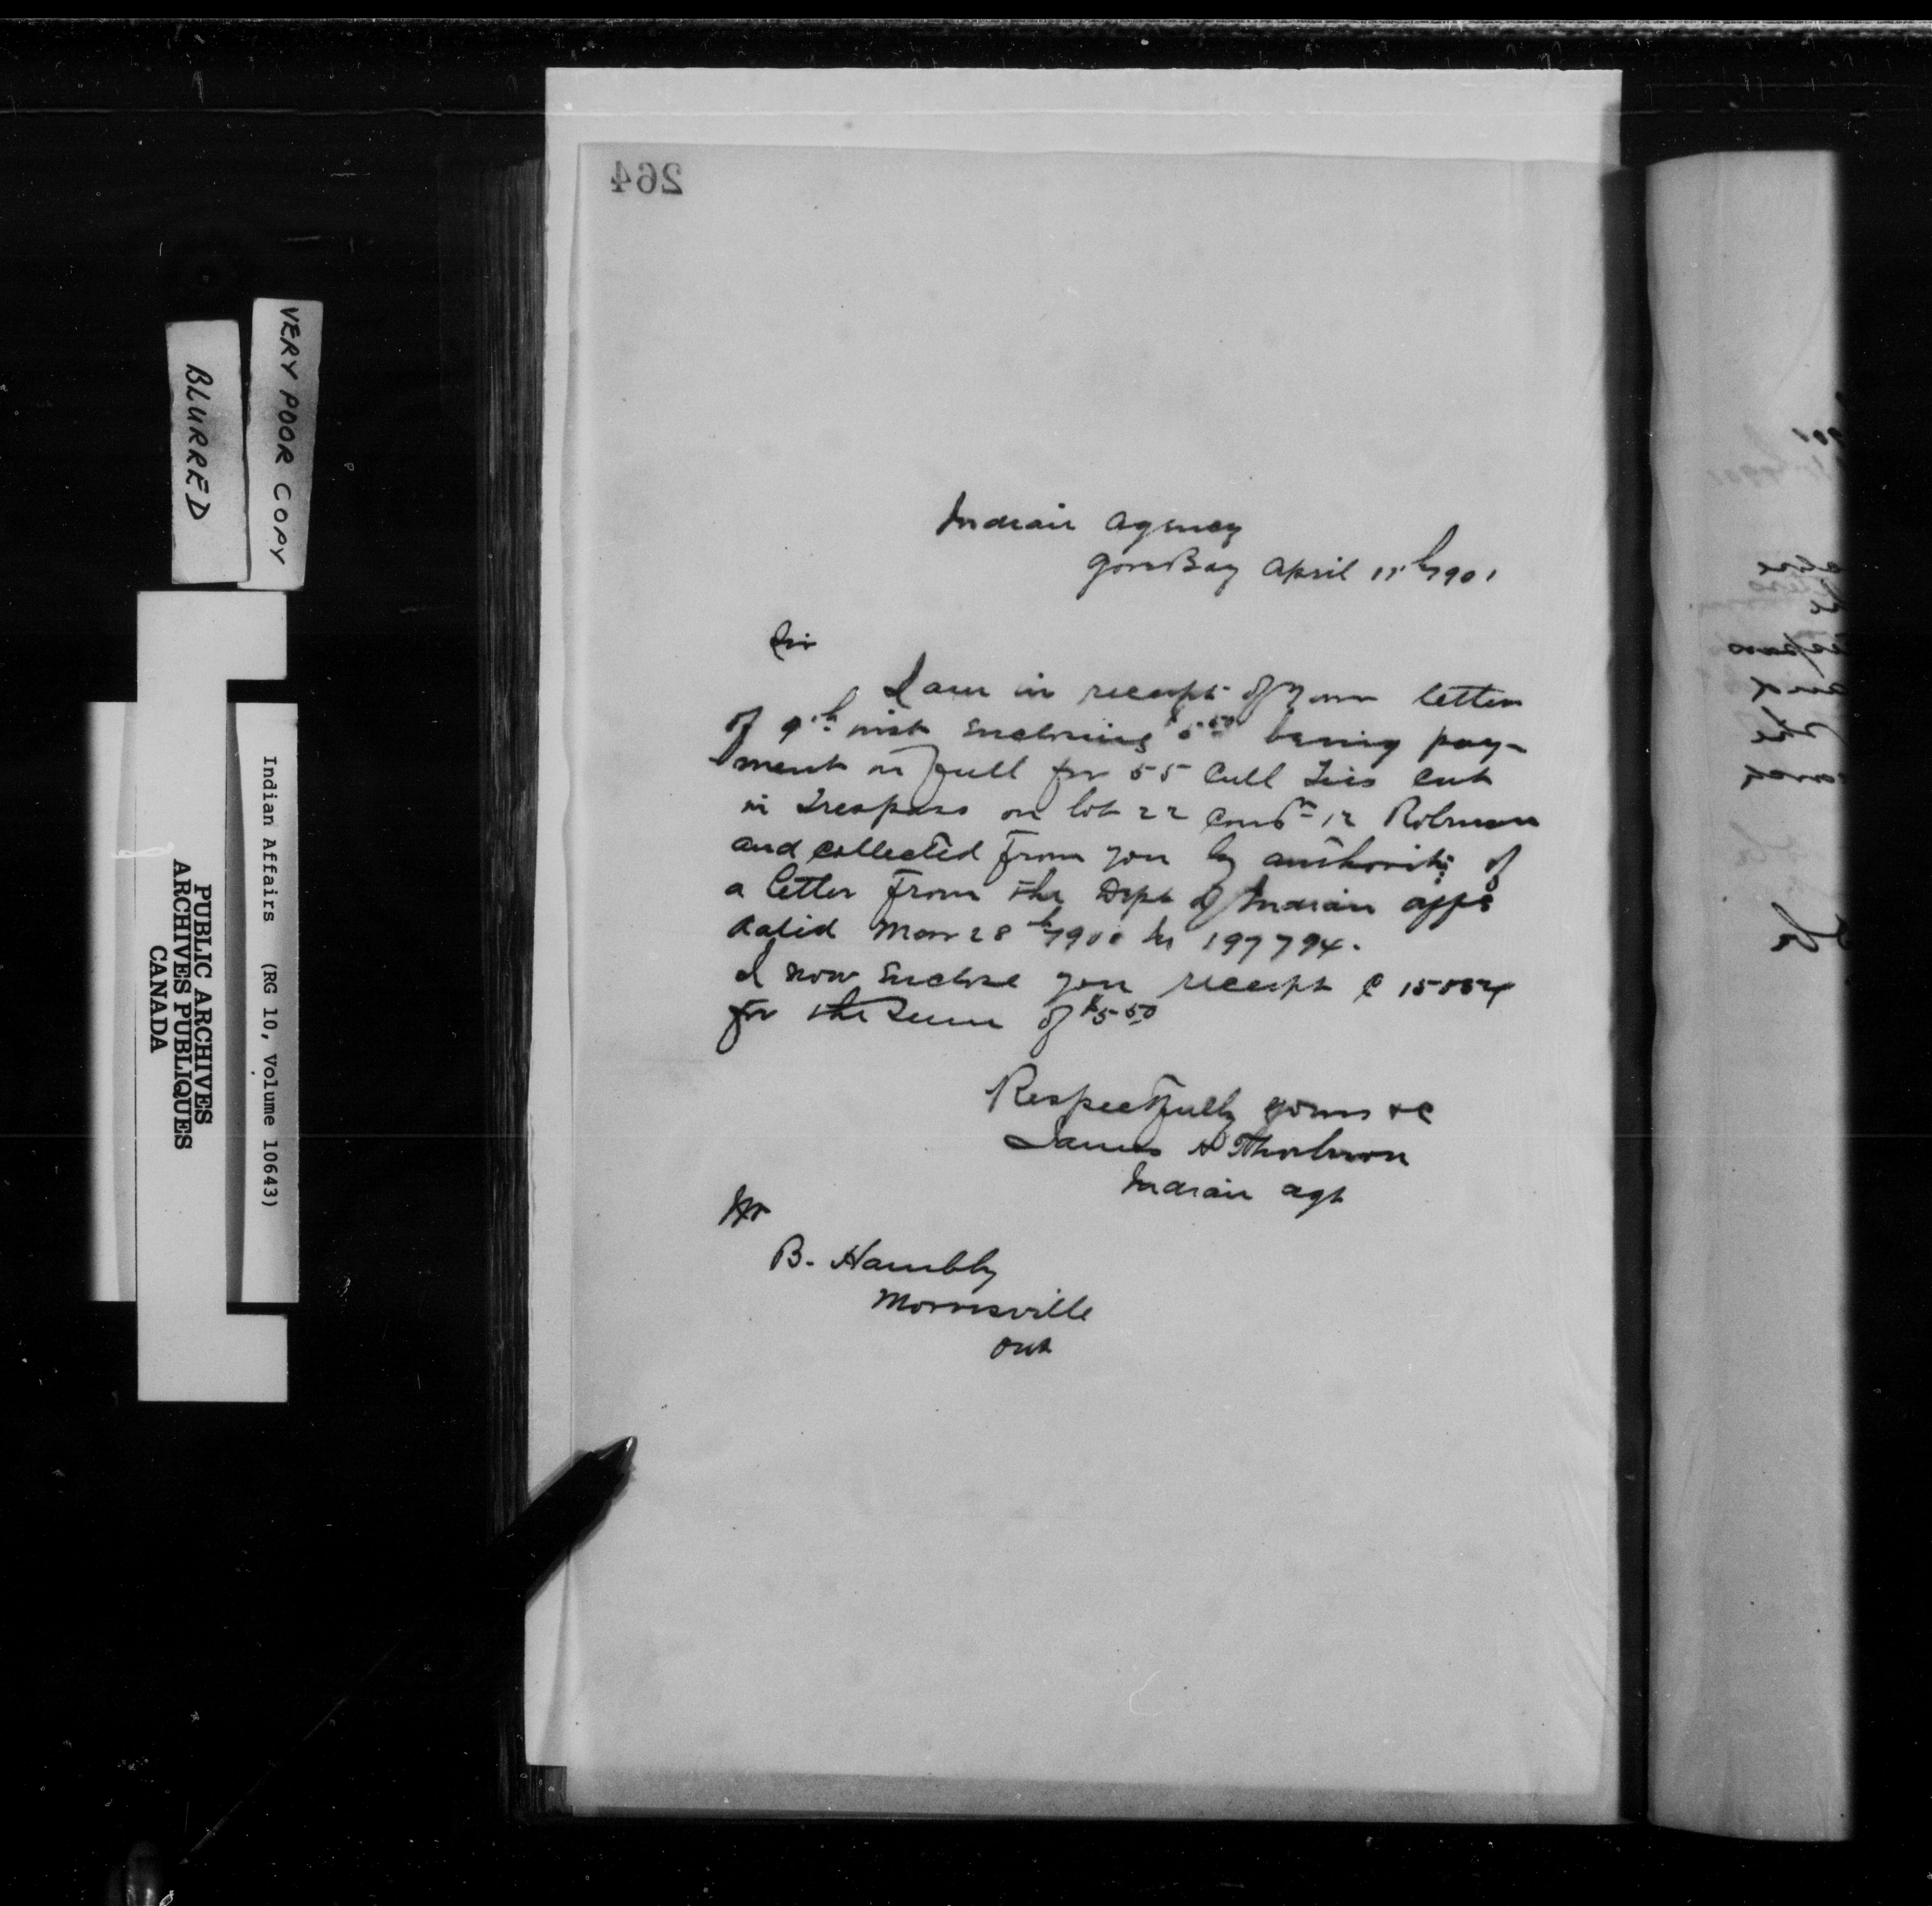 264
Indian Agency
Gore Bay April 11th 1901
Sir
I am in receipt of your letter
of 9th inst enclosing $5.50 being pay-
ment in full for 55 Cull Ties cut
in Trespass on lot 22 Con 12 Robinson
and collected from you by authority of
a letter from the Dept of Indian Affs
dated Mar 28th 1900 No 197794.
I now enclose you receipt C
for the sum of $5.50
Respectfully yours &c
James H Thorburn
Indian Agt
Mr
B. Hambly
Morrisville
Ont
VERY POOR COPY
BLURRED
Indian Affairs (RG 10, Volume 10643)
PUBLIC ARCHIVES
ARCHIVES PUBLIQUES
CANADA